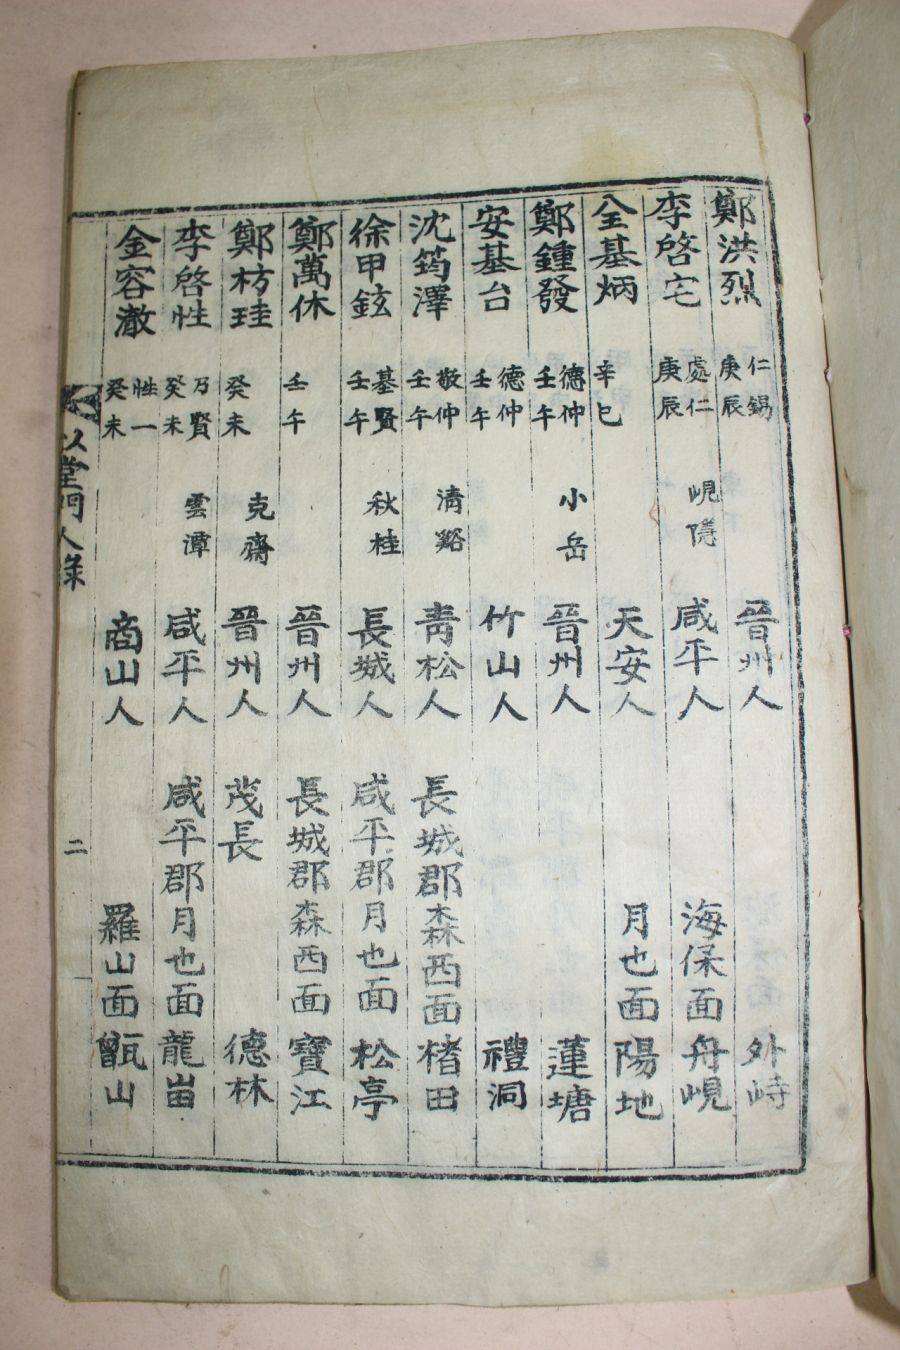 鄭洪烈 仁錫 庚辰 晉州人 外峙
李啓宅 處仁 庚辰 峴隱 咸平人 海保面 舟峴
全基炳 辛巳 天安人 月也面 陽地
鄭鍾發 德仲 壬午 小岳 晉州人 蓮塘
安基台 德仲 壬午 竹山人 禮洞
沈筠澤 敬仲 壬午 淸谿 靑松人 長城郡森西面 楮田
徐甲鉉 基賢 壬午 秋桂 長城人 咸平郡月也面 松亭
鄭萬休 壬午 晉州人 長城郡森西面 寶江
鄭枋珪 癸未 克齋 晉州人 茂長 德林
李啓性 乃賢 癸未 雲潭 咸平人 咸平郡月也面 龍
金容澈 性一 癸未 商山人 羅山面 甑山
堂門人錄
二